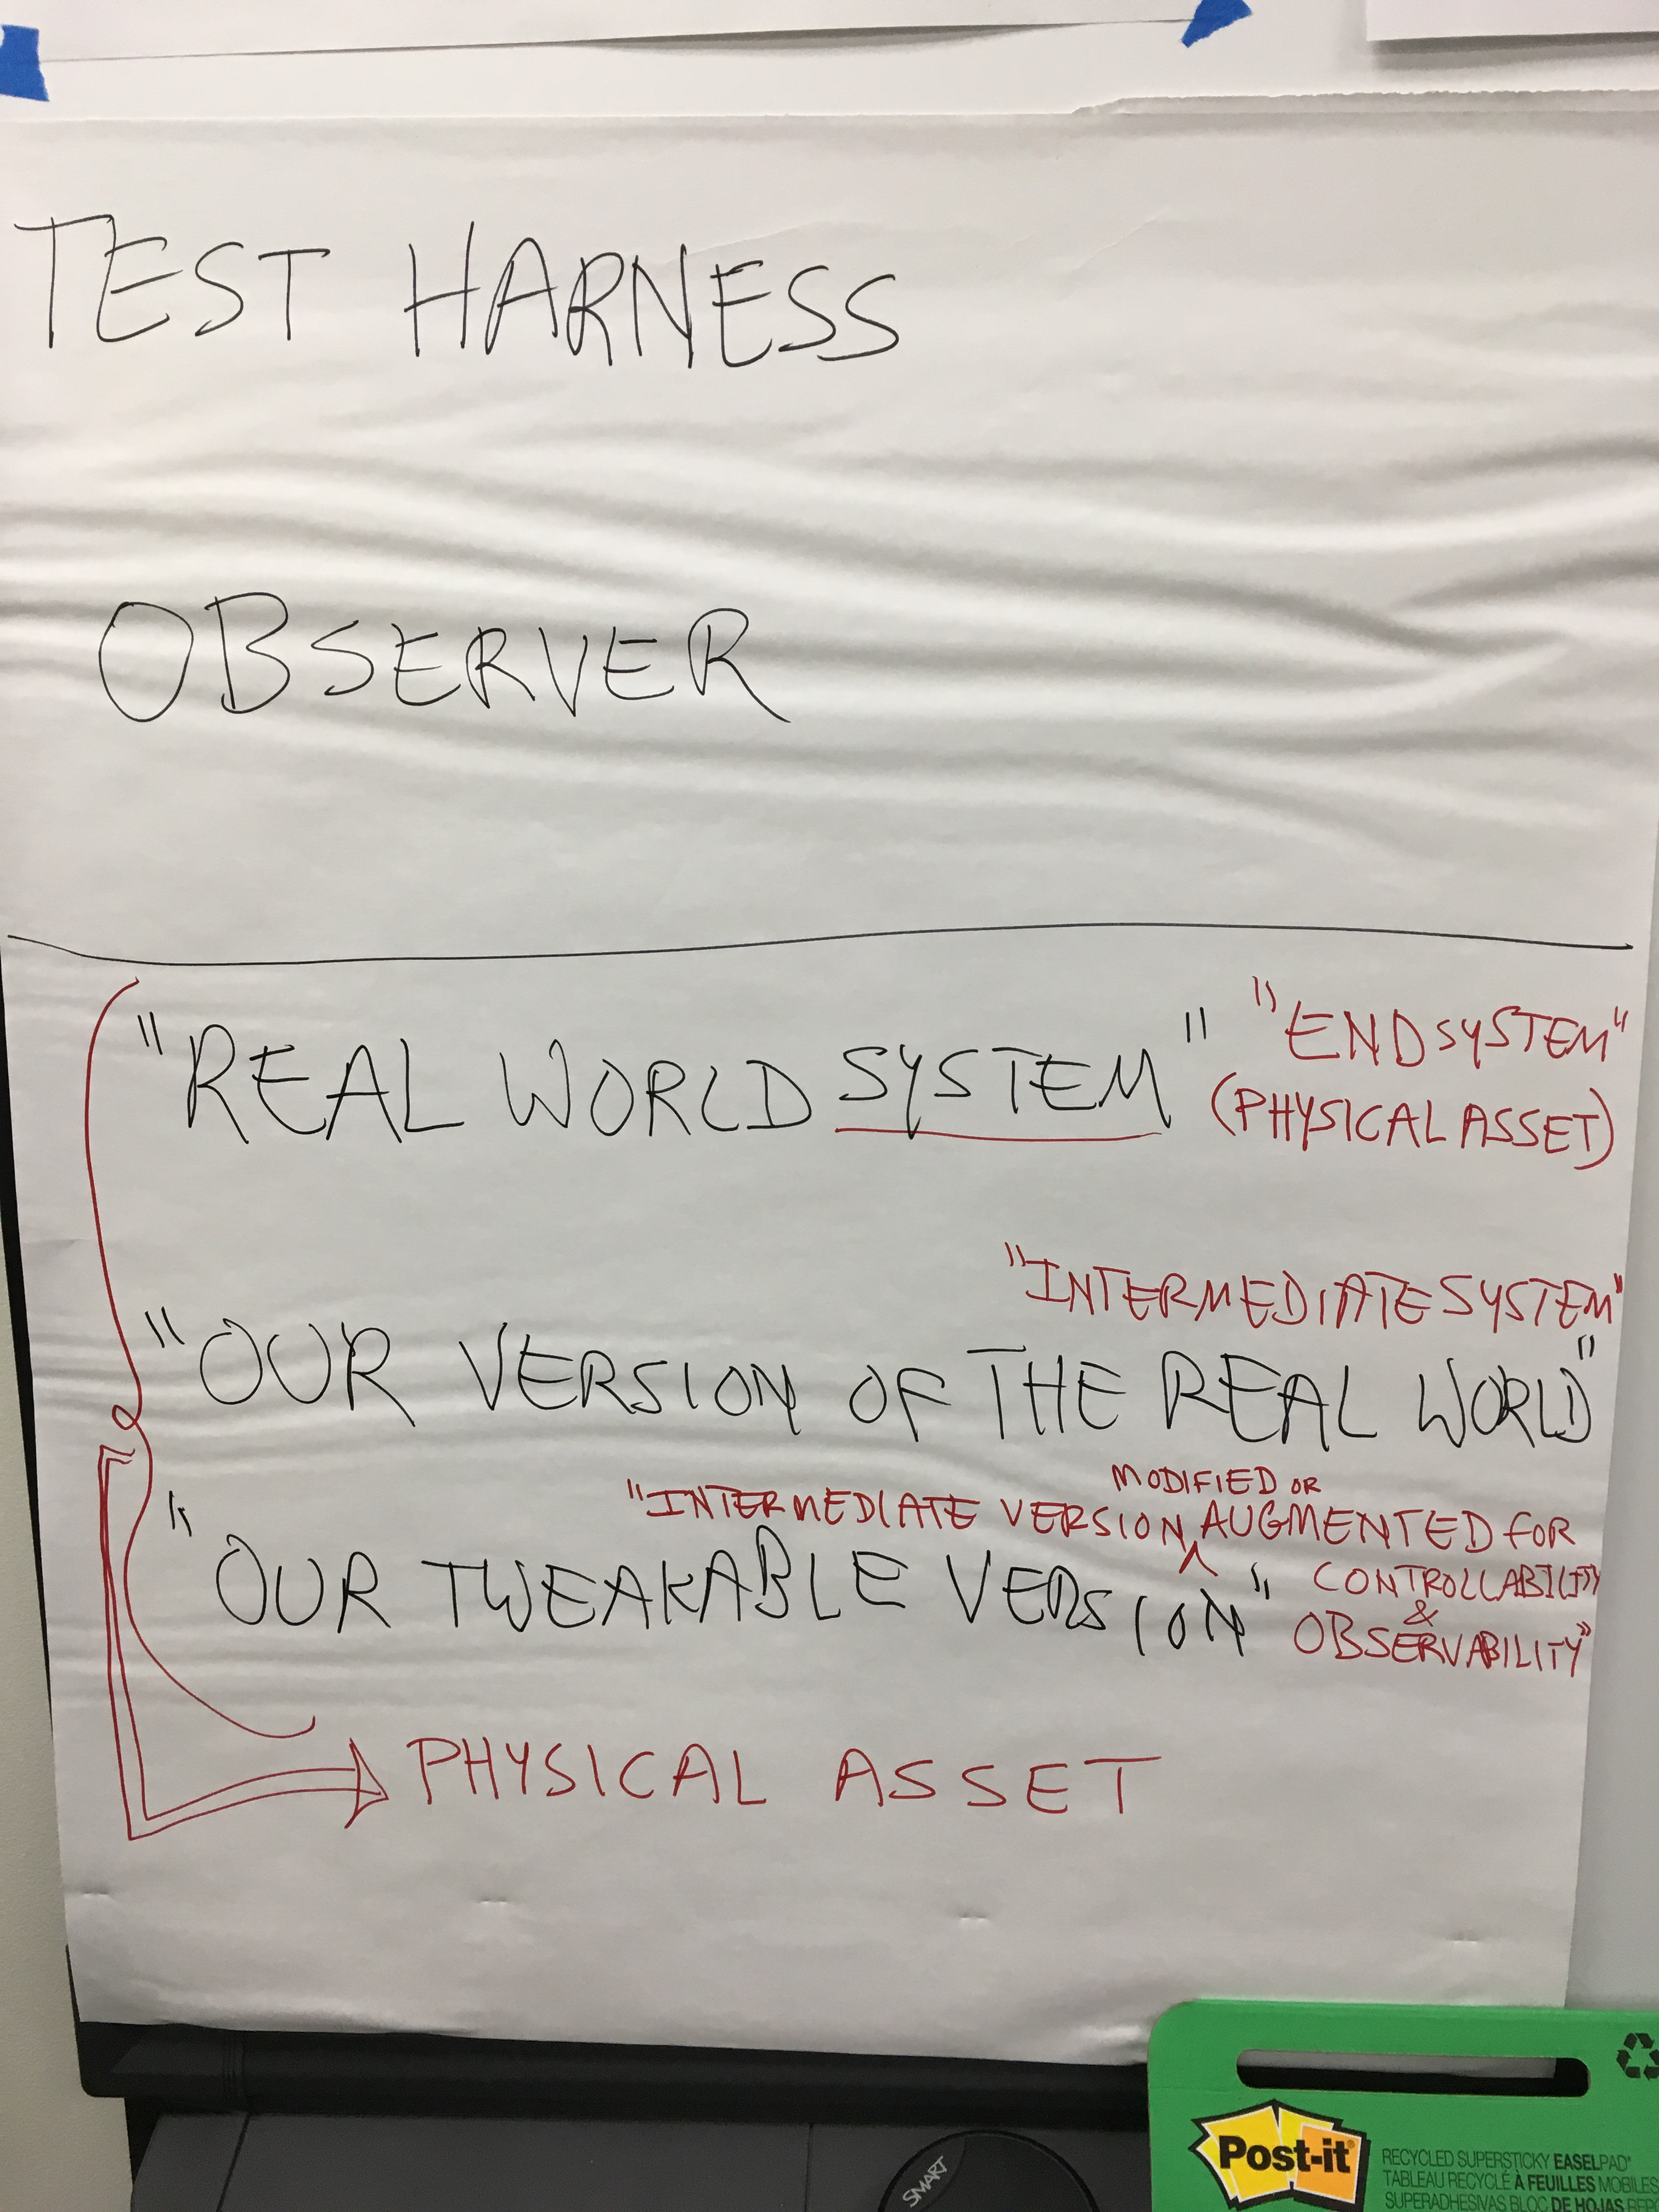 TEST HARNESS
OBSERVER
"REAL WORLD SYSTEM"
"END SYSTEM"
(PHYSICAL ASSET)
"INTERMEDIATE SYSTEM"
"OUR VERSION OF THE REAL WORLD"
MODIFIED OR
"INTERMEDIATE VERSION ^ AUGMENTED FOR
CONTROLLABILITY
&
OBSERVABILITY"
"OUR TWEAKABLE VERSION"
PHYSICAL ASSET
SMART
Post-it
RECYCLED SUPERSTICKY EASELPAD
TABLEAU RECYCLÉ À FEUILLES MOBILES
SUPERADHESIVAS BLOC DE HOJAS